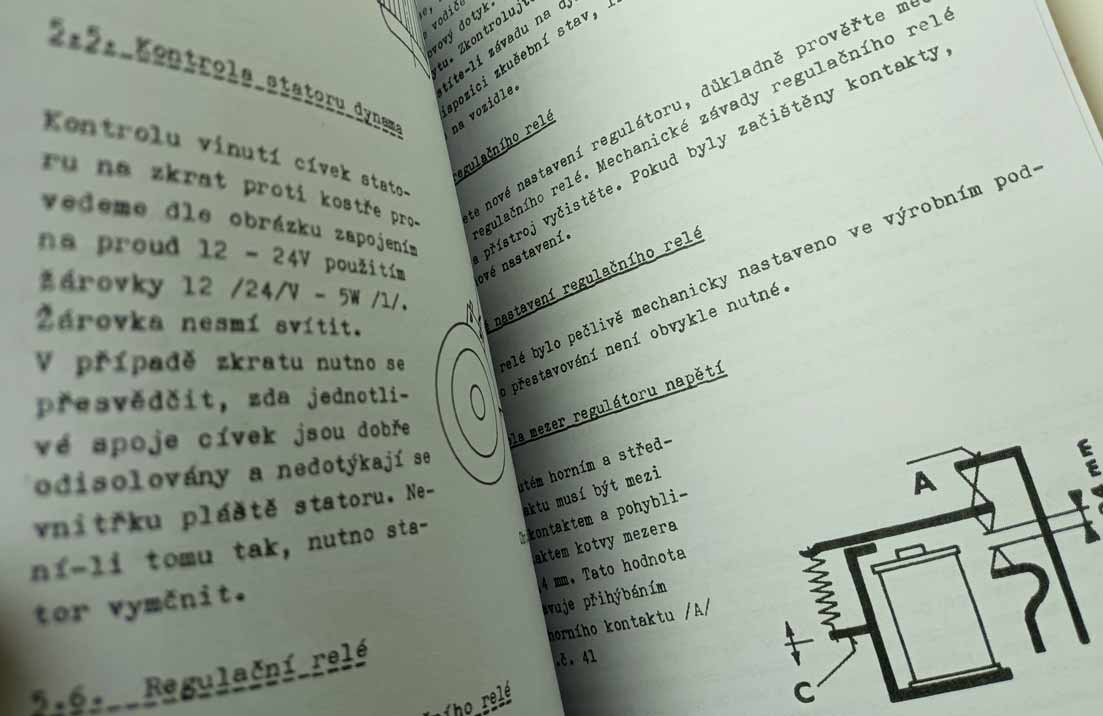 5.5. Kontrola statoru dynama
Kontrolu vinutí cívek stato-
ru na zkrat proti kostře pro-
vedeme dle obrázku zapojením
na proud 12 - 24V použitím
žárovky 12 /24/V - 5W /1/.
Žárovka nesmí svítit.
V případě zkratu nutno se
přesvědčit, zda jednotli-
vé spoje cívek jsou dobře
odisolovány a nedotýkají se
vnitřku pláště statoru. Ne-
ní-li tomu tak, nutno sta-
tor vyměnit.
5.6. Regulační relé
relé
vodiče
dotyk.
Zkontrolujte
závadu na
zkušební stav,
na vozidle.
regulačního relé
nové nastavení regulátoru, důkladně prověřte
regulačního relé. Mechanické závady regulačního relé
a přístroj vyčistěte. Pokud byly začištěny kontakty,
nové nastavení.
nastavení regulačního relé
relé bylo pečlivě mechanicky nastaveno ve výrobním pod-
přestavování není obvykle nutné.
mezer regulátoru napětí
horním a střed-
musí být mezi
kontaktem a pohybli-
kotvy mezera
4 mm. Tato hodnota
přihýbáním
horního kontaktu /A/
č. 41
A
E
E
C